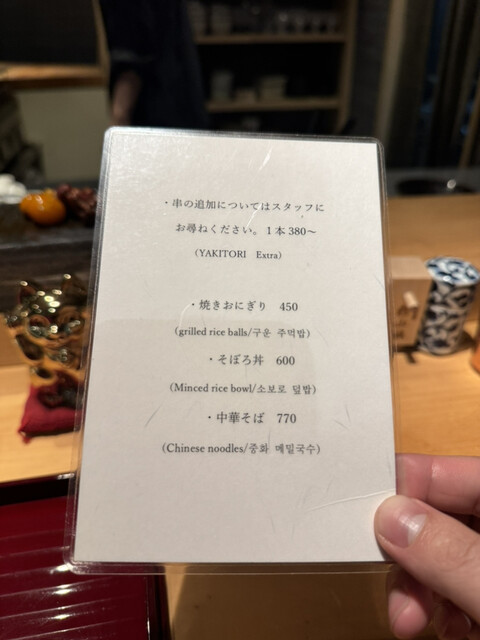 ・串の追加についてはスタッフに
お尋ねください。1本380～
(YAKITORI Extra)
・焼きおにぎり 450
(grilled rice balls/구운 주먹밥)
・そぼろ丼 600
(Minced rice bowl/소보로 덮밥)
・中華そば 770
(Chinese noodles/중화 메밀국수)